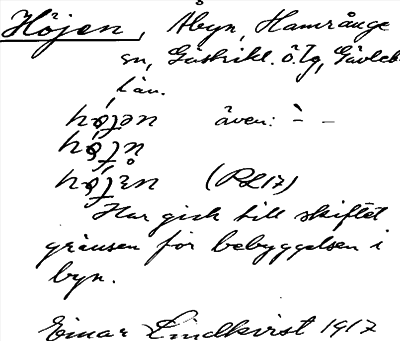 Höjen, Åbyn, Hamrånge
sn, Gästrikl. ö. Tg, Gävleb.
län.
även: ` –
(RL17)
Här gick till skiftet
gränsen för bebyggelsen i
byn.
Einar Lindkvist 1917